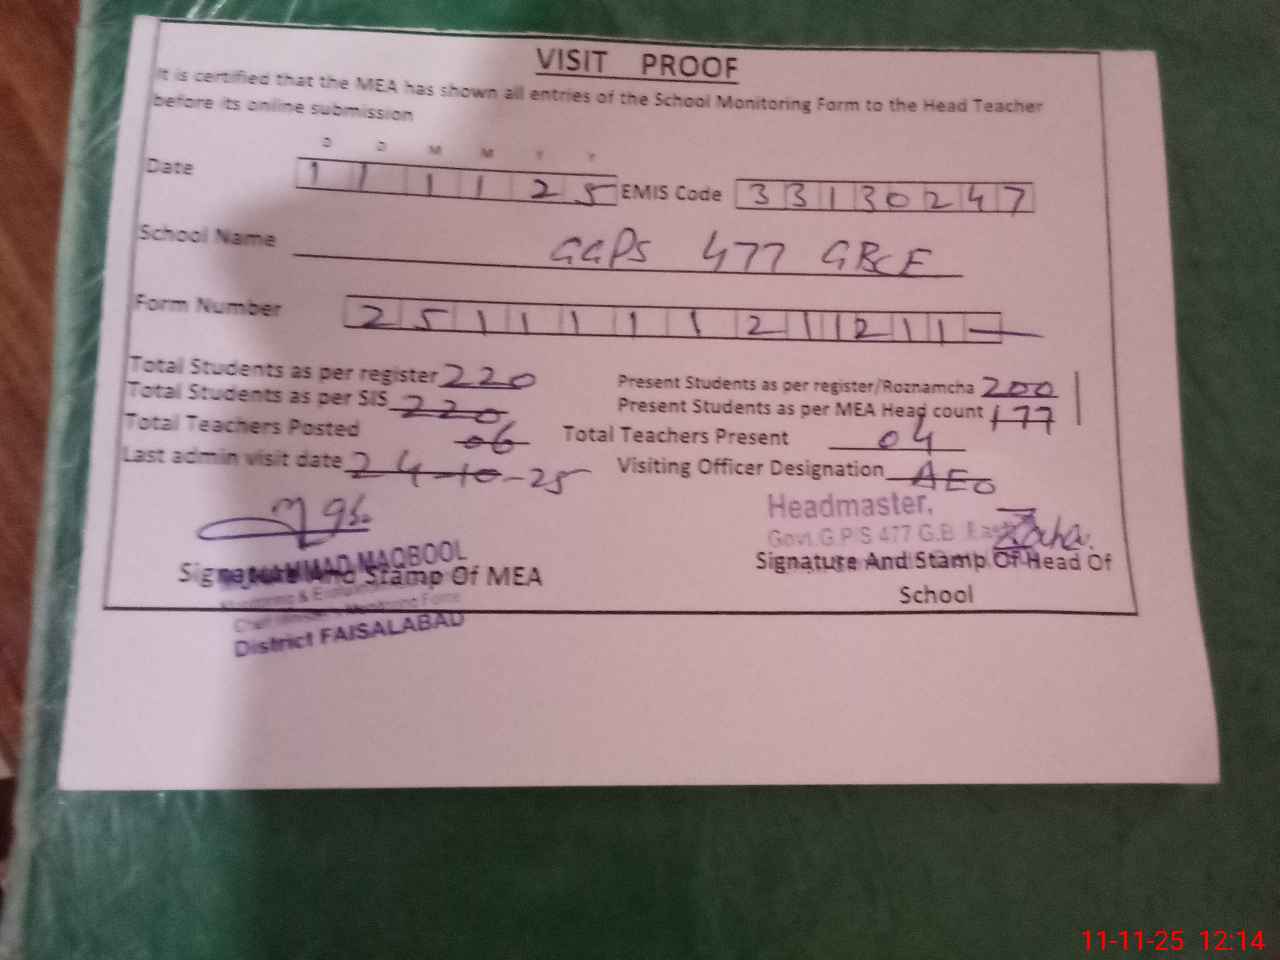 VISIT PROOF
It is certified that the MEA has shown all entries of the School Monitoring Form to the Head Teacher
before its online submission
D D M M Y Y
Date 1 1 1 1 2 5 EMIS Code 3 3 1 3 0 2 4 7
School Name GGPS 477 GBCE
Form Number 2 5 1 1 1 1 1 2 1 1 2 1 1 —
Total Students as per register 220 Present Students as per register/Roznamcha 200
Total Students as per SIS 220 Present Students as per MEA Head count 177
Total Teachers Posted 06 Total Teachers Present 04
Last admin visit date 24-10-25 Visiting Officer Designation AEO
Headmaster,
Govt. G.P/S 477 G.B.
MUHAMMAD MAQBOOL
Signature And Stamp Of MEA Signature And Stamp Of Head Of
School
District FAISALABAD
11-11-25 12:14